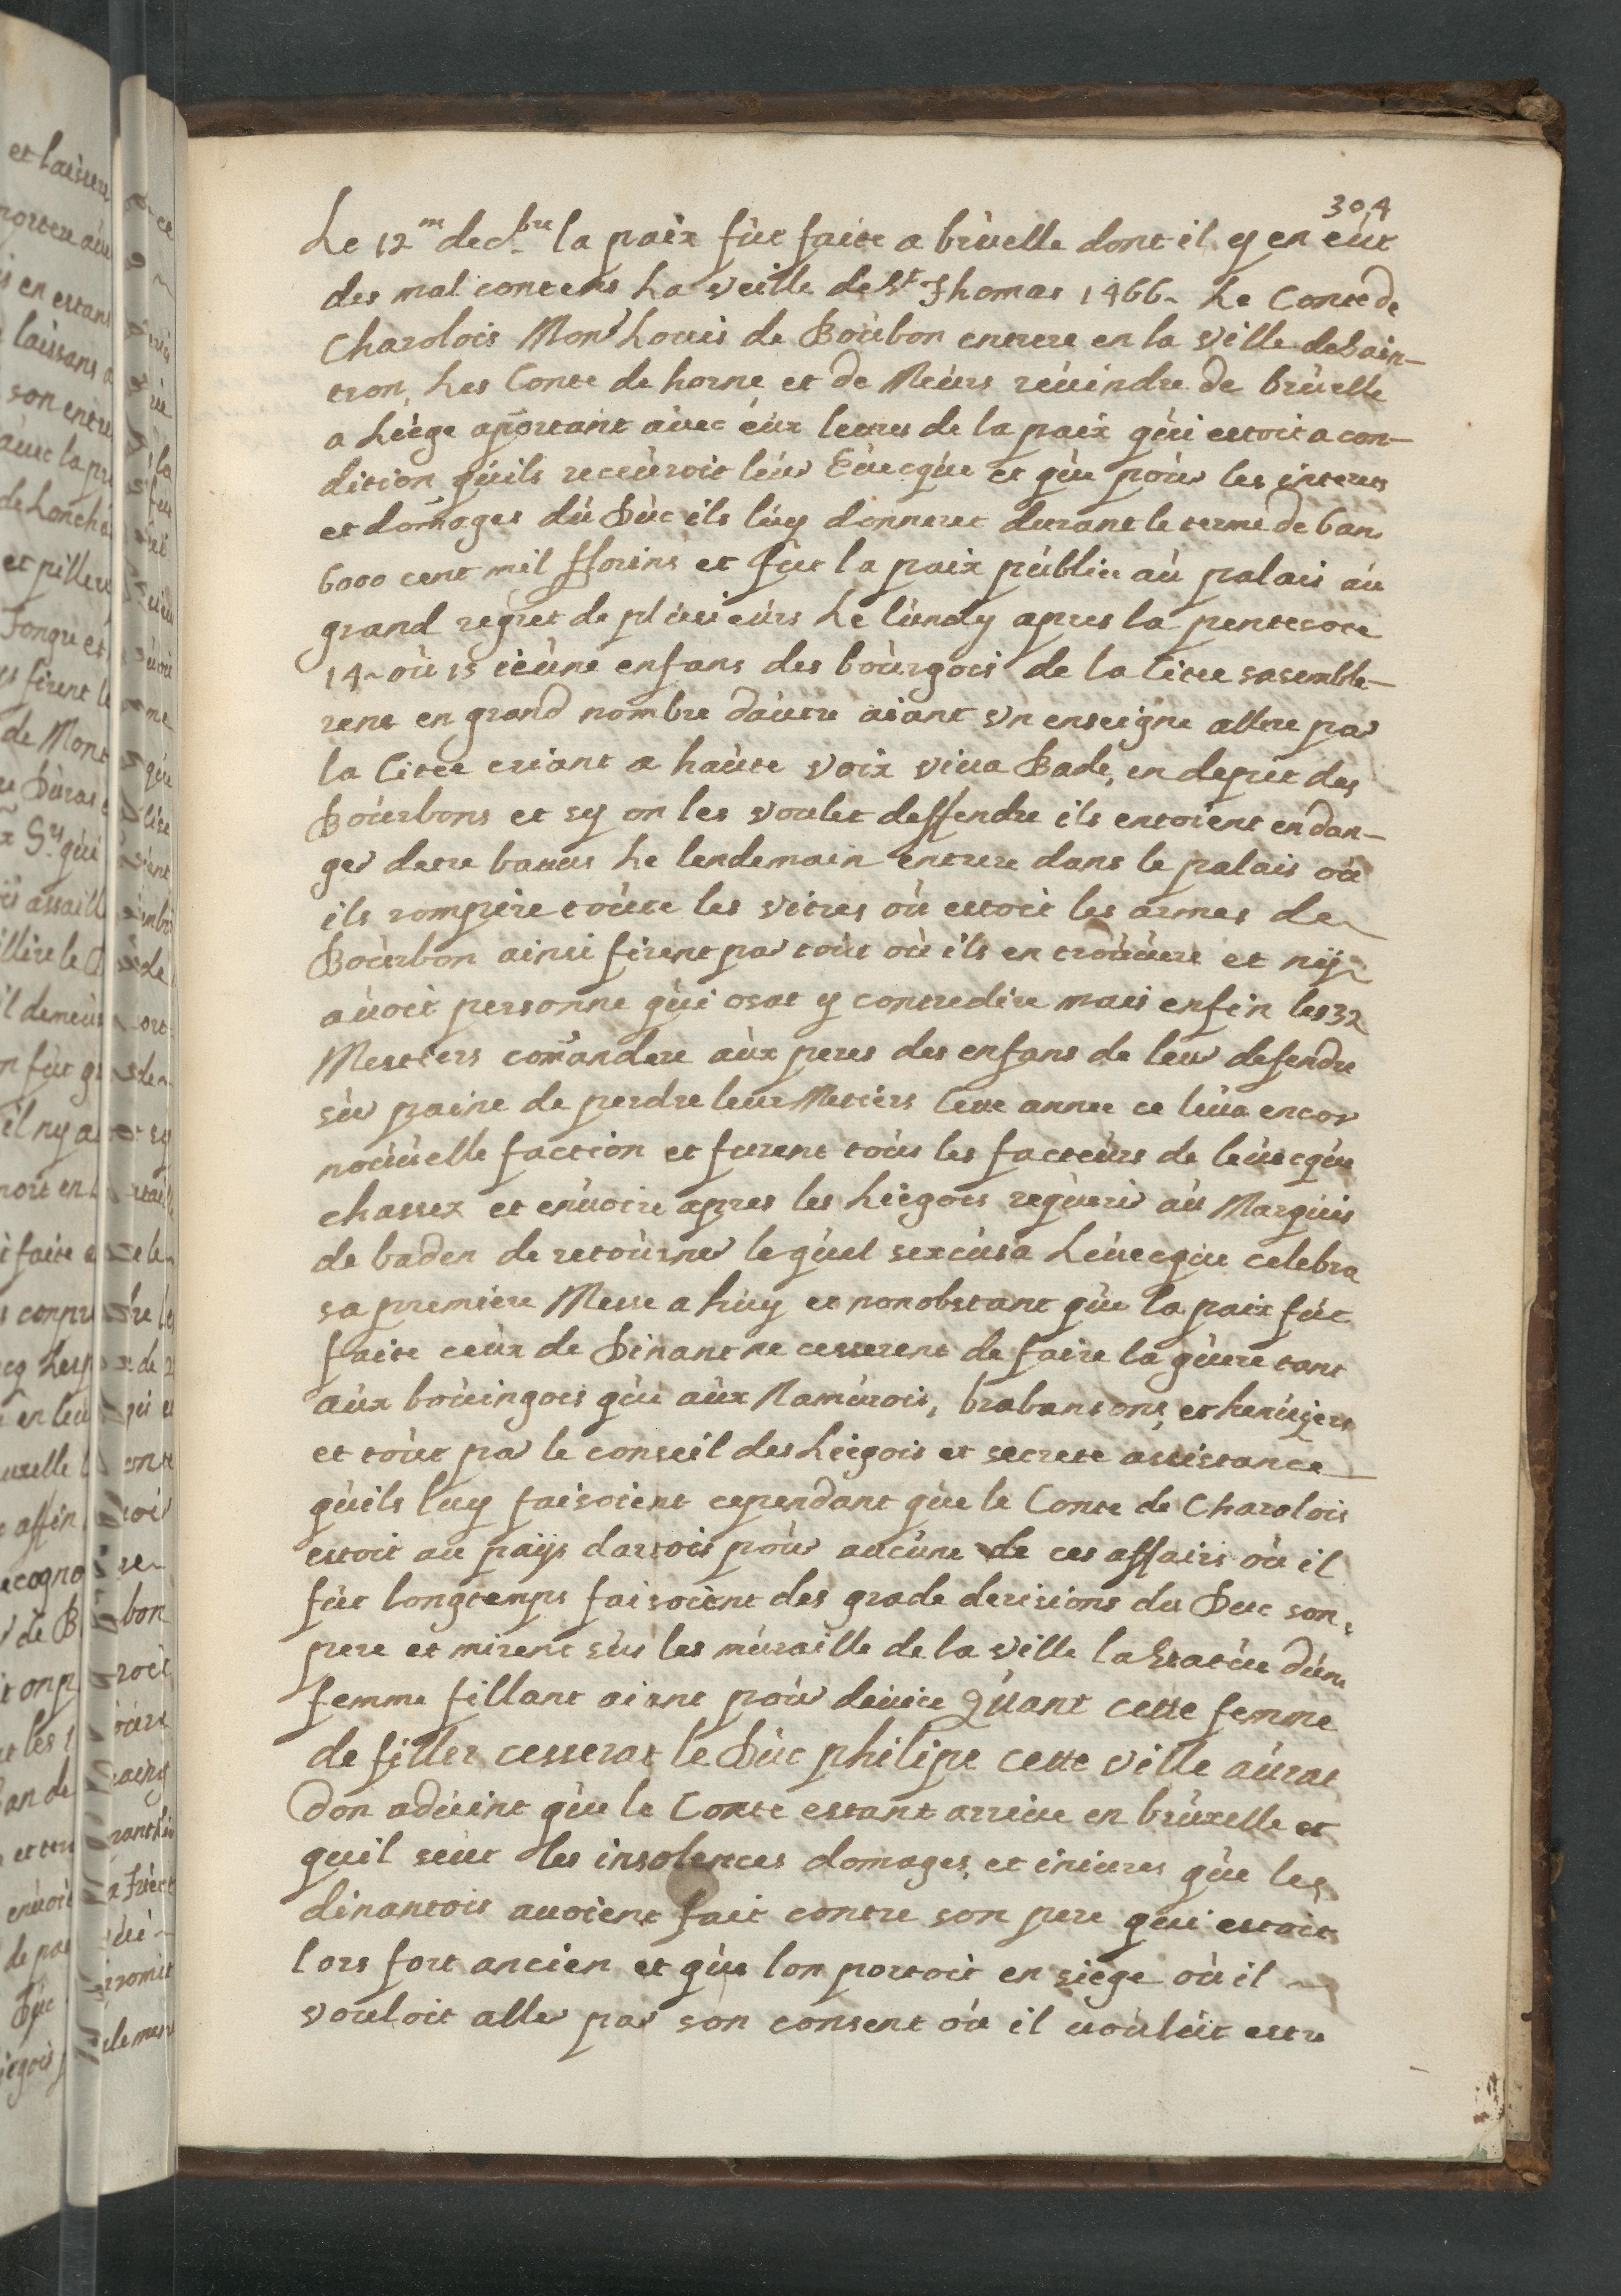 304
Le 12.m dec.bre la paix fùt faite a brùelle dont il y en eùt
des mal contens La veille de St Thomas 1466 Le Conte de
Charolois Monr Louis de Boùrbon entrere en la ville de Sain-
tron, Les Conte de horne et de Meùrs reùindre de brùelle
a Lièges aportant aùec eùx lettres de la paix qùi estoit a con-
dition qùils receùroit leùr Eùecqùe et qùe poùr les interes
et domages dù Dùc ils lùy donneret durant le terme de 6 ans
6000 cent mil fflorins et fùt la paix pùblie aù palais aù
grand regret de plùsieùrs Le lùndy apres la pentecote
14 où 15 ieùne enfans des boùrgois de la Citee sasemble-
rent en grand nombre daùtre aiant vn enseigne allere par
la Citee criant a haùte voix viua Bade, en depit des
Boùrbons et sy on les voulet deffendre ils entoient en dan-
ger detre batus Le lendemain entrere dans le palais où
ils rompire toùte les vitres où estoit les armes de
Boùrbon ainsi firent par toùt où ils en troùùere et nÿ
aùoit personne qùi osat y contredire mais enfin les 32
Mestiers comandere aùx peres des enfans de leur defendre
sùr paine de perdre leur Metiers Cette annee ce leùa encor
noùùelle faction et furent toùs les facteùrs de leùecqùe
chassez et enùoire apres les Liègois reqùerir aù Marqùis
de baden de retoùrner leqùel sexcùsa Leùecqùe celebra
sa premiere Messe a hùy et nonobstant qùe la paix fùt
faite ceùx de Dinant ne cesserent de faire la gùere tant
aùx boùingois qùe aùx Namùrois, brabansons, et henùÿers
et toùt par le conseil des Liègois et secrete assistance
qùils luy faisoient cependant qùe le Conte de Charolois
estoit au paÿs dartois poùr aucùne de ces affairs où il
fùt longtemps faisoient des grade derisions du Duc son
pere et mirent sùr les mùraille de la ville la Statùe dùne
femme fillant aiant poùr deùice Qùant cette femme
de filler cesserat le Dùc philipe cette ville aùrat
don adùint qùe le Conte estant arriue en brùxelle et
quil seùt les insolences domages, et iniures qùe les
dinantois auoient fait contre son pere qùi estoit
lors fort ancien et qùe lon portoit en siege où il
vouloit aller par son consent où il uoùlùt estre